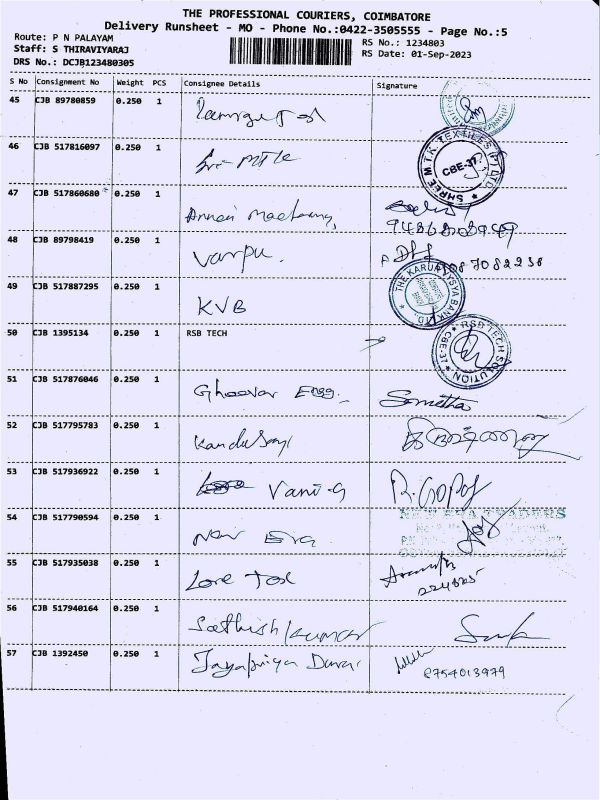 THE PROFESSIONAL COURIERS, COIMBATORE
Delivery Runsheet - MO - Phone No.:0422-3505555 - Page No.:5
Route: P N PALAYAM
Staff: S THIRAVIYARAJ
DRS No.: DCJB123480305
RS No.: 1234803
RS Date: 01-Sep-2023
S No Consignment No Weight PCS Consignee Details Signature
45 CJB 89780859 0.250 1
46 CJB 517816097 0.250 1 Sri MTK
SHREE M.T.K. TEXTILES (P) LTD. CBE-37
47 CJB 517860680 0.250 1 Annai
48 CJB 89798419 0.250 1 Varpu.
49 CJB 517887295 0.250 1 KVB
THE KARUR VYSYA BANK LTD.
50 CJB 1395134 0.250 1 RSB TECH
RSB TECH SOLUTION CBE-37
51 CJB 517876046 0.250 1 Engg.
52 CJB 517795783 0.250 1 Kandasamy
53 CJB 517936922 0.250 1 Vani-G R. Gopal
54 CJB 517790594 0.250 1 New Era
NEW ERA TRADERS
55 CJB 517935038 0.250 1 Love Tex
56 CJB 517940164 0.250 1 Sathish kumar
57 CJB 1392450 0.250 1 Jayapriya Durai
8754013979